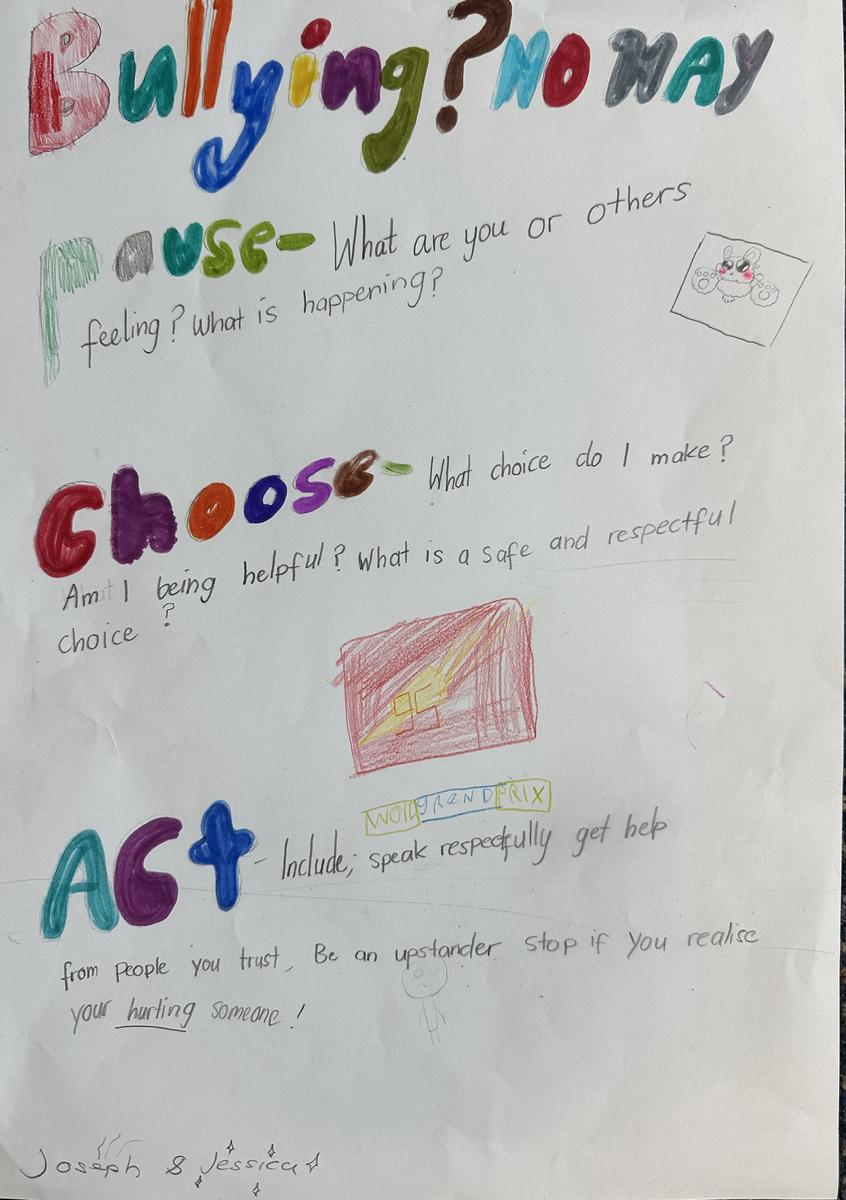 Bullying? NO WAY
Pause- What are you or others
feeling? What is happening?
Choose- What choice do I make?
Am I being helpful? What is a safe and respectful
choice?
95
GRAND PRIX
ACt - Include, speak respectfully get help
from people you trust, Be an upstander stop if you realise
your hurting someone!
Joseph & Jessica